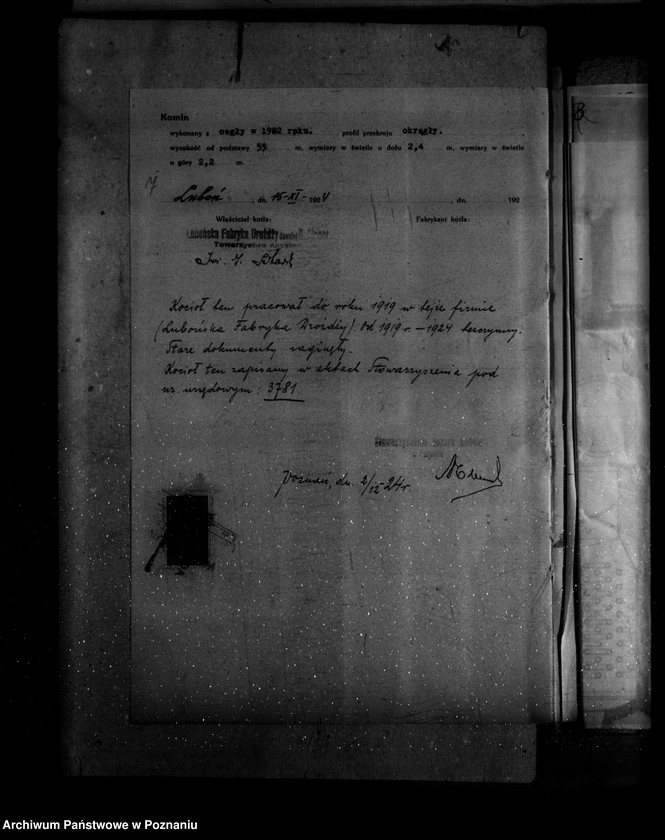 Komin
wykonany z cegły w 1902 roku. profil przekroju okrągły.
wysokość od podstawy 55 m, wymiary w świetle u dołu 2,4 m, wymiary w świetle
u góry 2,2 m.
Luboń, dn. 15-XI- 1924 , dn. 192
Właściciel kotła: Fabrykant kotła:
Lubońska Fabryka Drożdży
Towarzystwo
Kocioł ten pracował do roku 1919 w tejże firmie
(Lubońska Fabryka Drożdży). Od 1919 r. – 1924 bezczynny.
Stare dokumenty zaginęły.
Kocioł ten zapisany w aktach Stowarzyszenia pod
nr. urzędowym: 3781
Poznań, dn. 2/12 24 r.
Archiwum Państwowe w Poznaniu